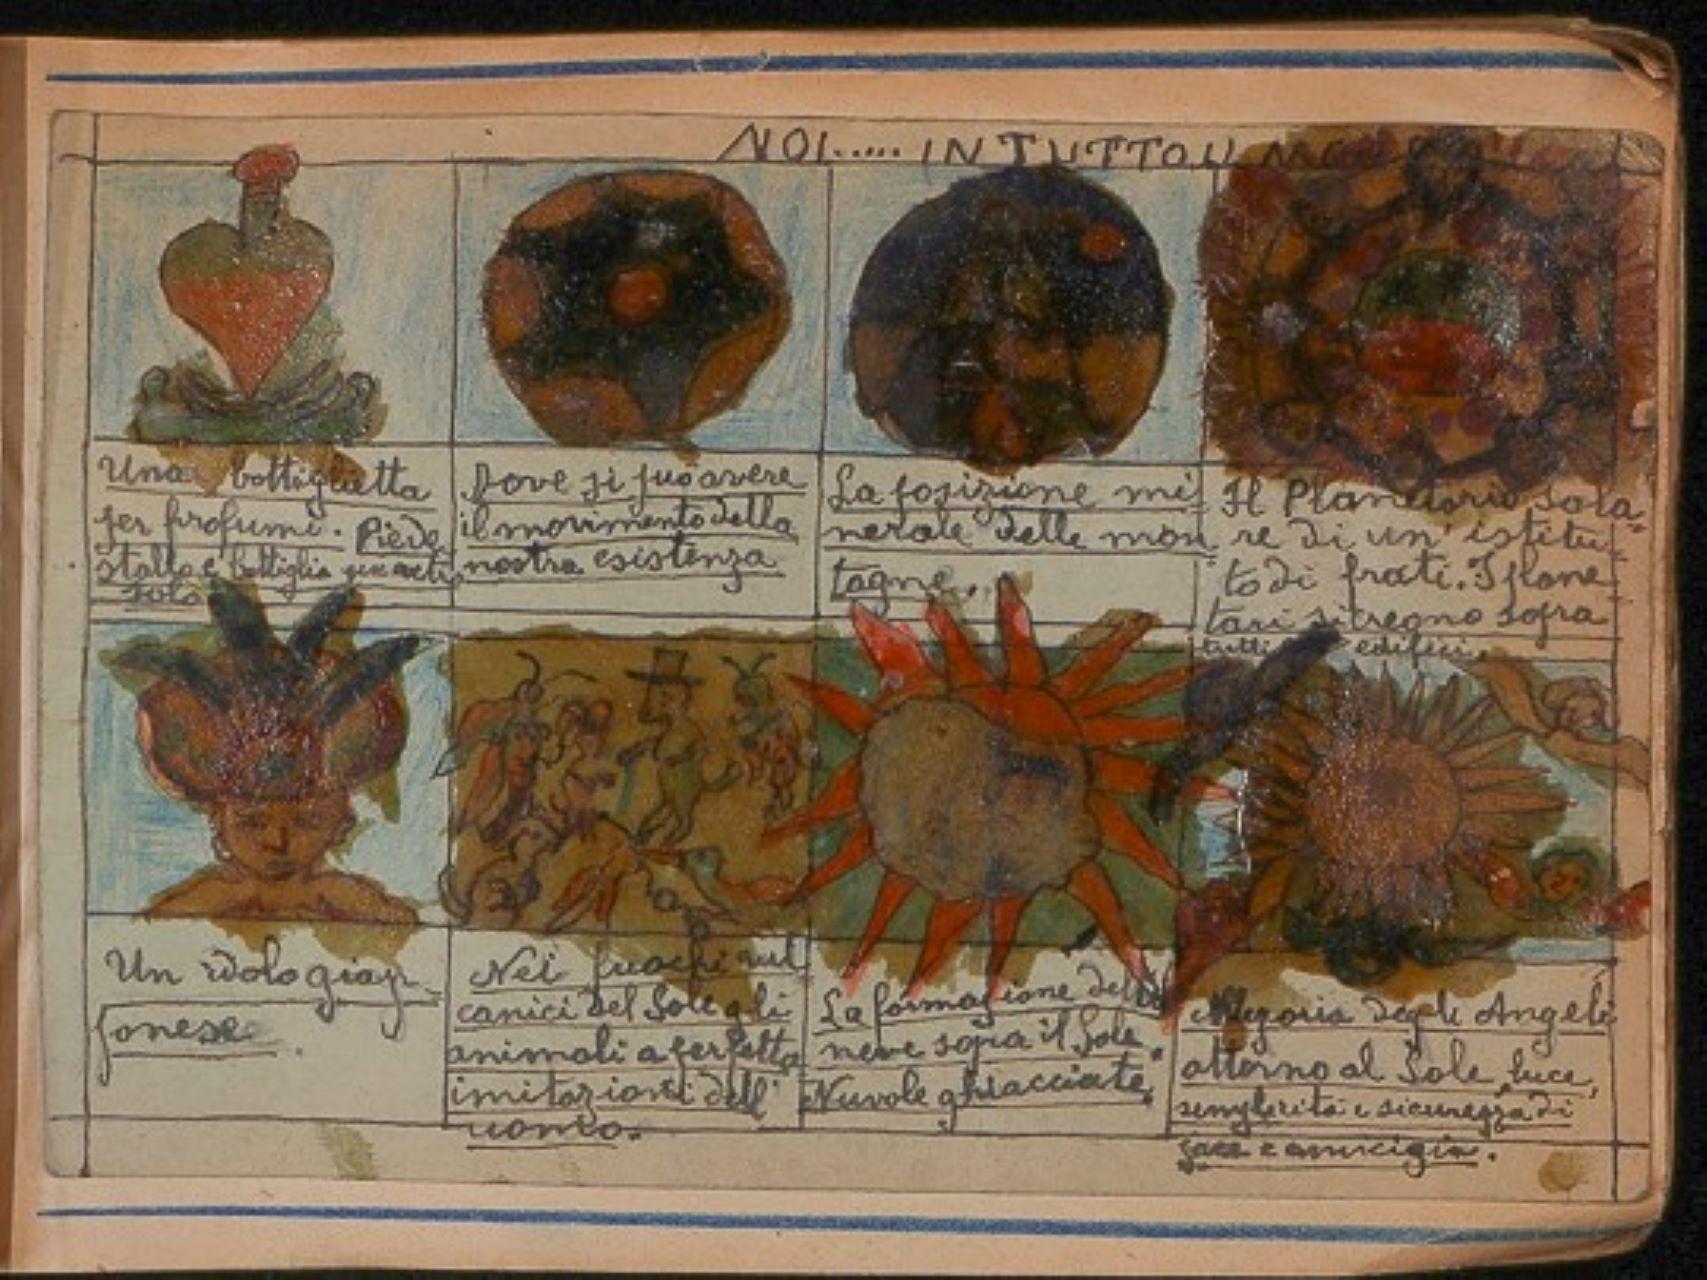 NOI..... IN TUTTO
Una bottiglietta
per profumi. Piede
stallo e bottiglia
solo
Dove si può avere
il movimento della
nostra esistenza
La posizione mi-
nerale delle mon
tagne.
Il Planetario Sola-
re di un' istitu-
to di frati. I plane-
tari si regno sopra
tutti edifici.
Un idolo giap-
ponese.
Nei fuochi vul
canici del Sole gli
animali a perfetta
imitazioni dell'
uomo.
La formazione della
neve sopra il Sole.
Nuvole ghiacciate.
degli Angeli
attorno al Sole, luce,
e sicurezza di
pace e amicizia.